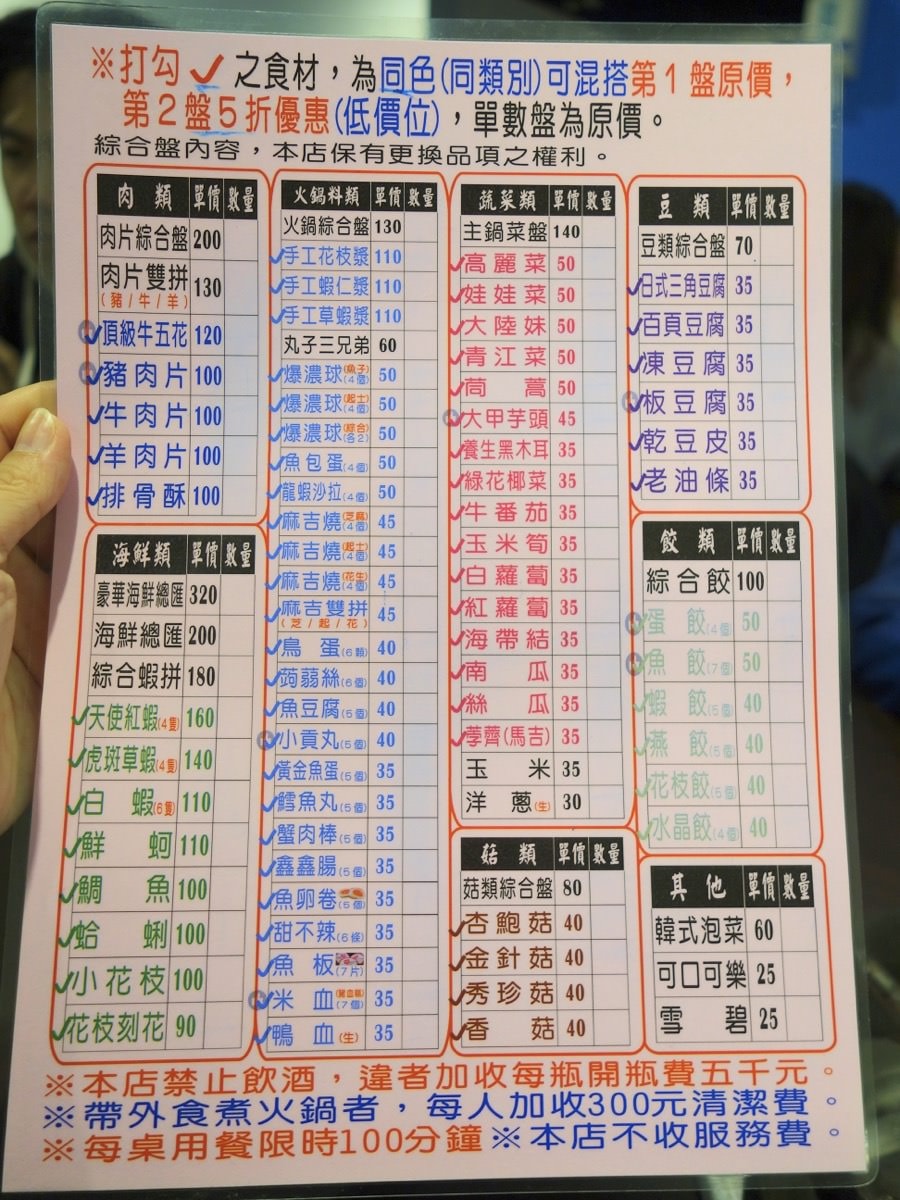 ※打勾✓之食材，為同色(同類別)可混搭第1盤原價，
第2盤5折優惠(低價位)，單數盤為原價。
綜合盤內容，本店保有更換品項之權利。
肉類 單價 數量
肉片綜合盤 200
肉片雙拼 130
(豬/牛/羊)
✓頂級牛五花 120
✓豬肉片 100
✓牛肉片 100
✓羊肉片 100
✓排骨酥 100
海鮮類 單價 數量
豪華海鮮總匯 320
海鮮總匯 200
綜合蝦拼 180
✓天使紅蝦(4隻) 160
✓虎斑草蝦(4隻) 140
✓白蝦(6隻) 110
✓鮮蚵 110
✓鯛魚 100
✓蛤蜊 100
✓小花枝 100
✓花枝刻花 90
火鍋料類 單價 數量
火鍋綜合盤 130
✓手工花枝漿 110
✓手工蝦仁漿 110
✓手工草蝦漿 110
丸子三兄弟 60
✓爆濃球(魚子)(4個) 50
✓爆濃球(起士)(4個) 50
✓爆濃球(綜合)(各2) 50
✓魚包蛋(4個) 50
✓龍蝦沙拉(4個) 50
✓麻吉燒(芝麻)(4個) 45
✓麻吉燒(起士)(4個) 45
✓麻吉燒(花生)(4個) 45
✓麻吉雙拼 45
(芝/起/花)
✓鳥蛋(6顆) 40
✓蒟蒻絲(6個) 40
✓魚豆腐(5個) 40
✓小貢丸(5個) 40
✓黃金魚蛋(5個) 35
✓鱈魚丸(5個) 35
✓蟹肉棒(5個) 35
✓鑫鑫腸(5個) 35
✓魚卵卷(5個) 35
✓甜不辣(6條) 35
✓魚板(7片) 35
✓米血(豬血糕)(7個) 35
✓鴨血(生) 35
蔬菜類 單價 數量
主鍋菜盤 140
✓高麗菜 50
✓娃娃菜 50
✓大陸妹 50
✓青江菜 50
✓茼蒿 50
✓大甲芋頭 45
✓養生黑木耳 35
✓綠花椰菜 35
✓牛番茄 35
✓玉米筍 35
✓白蘿蔔 35
✓紅蘿蔔 35
✓海帶結 35
✓南瓜 35
✓絲瓜 35
✓荸薺(馬吉) 35
玉米 35
洋蔥(生) 30
菇類 單價 數量
菇類綜合盤 80
✓杏鮑菇 40
✓金針菇 40
✓秀珍菇 40
✓香菇 40
豆類 單價 數量
豆類綜合盤 70
✓日式三角豆腐 35
✓百頁豆腐 35
✓凍豆腐 35
✓板豆腐 35
✓乾豆皮 35
✓老油條 35
餃類 單價 數量
綜合餃 100
✓蛋餃(4個) 50
✓魚餃(7個) 50
✓蝦餃(5個) 40
✓燕餃(5個) 40
✓花枝餃(5個) 40
✓水晶餃(4個) 40
其他 單價 數量
韓式泡菜 60
可口可樂 25
雪碧 25
※本店禁止飲酒，違者加收每瓶開瓶費五千元。
※帶外食煮火鍋者，每人加收300元清潔費。
※每桌用餐限時100分鐘※本店不收服務費。